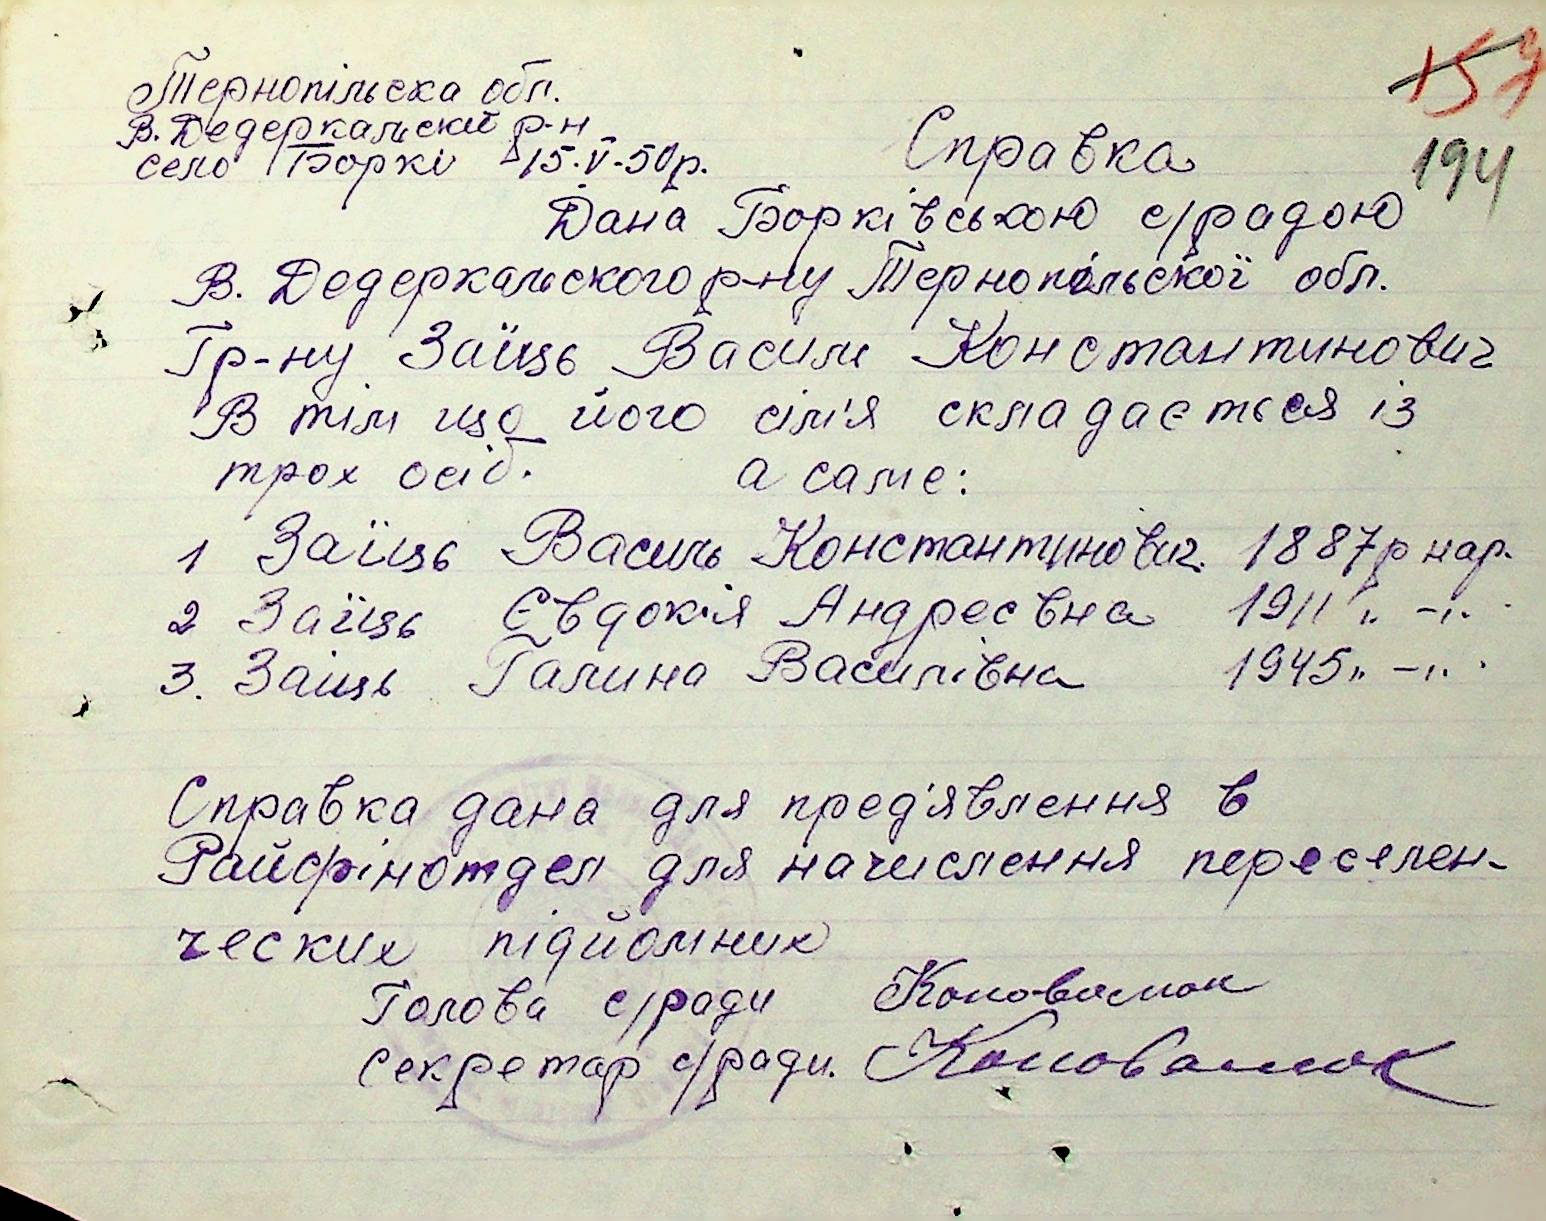 157
194
Тернопільска обл.
В. Дедеркальский р-н
село Боркі 15.V-50р.
Справка
Дана Борківською с/радою
В. Дедеркальского р-ну Тернопільскої обл.
Гр-ну Заїць Василь Константинович
В тім що його сім'я складається із
трох осіб. а саме:
1 Заїць Василь Константинович. 1887р нар.
2 Заїць Євдокія Андреєвна 1911 " -"-
3. Заіць Галина Василівна 1945 " -"-
Справка дана для предʼявлення в
Райфінотдел для начислення переселен-
ческих підйомних
Голова с/ради Коновалюк
секретар с/ради. Коновалюк